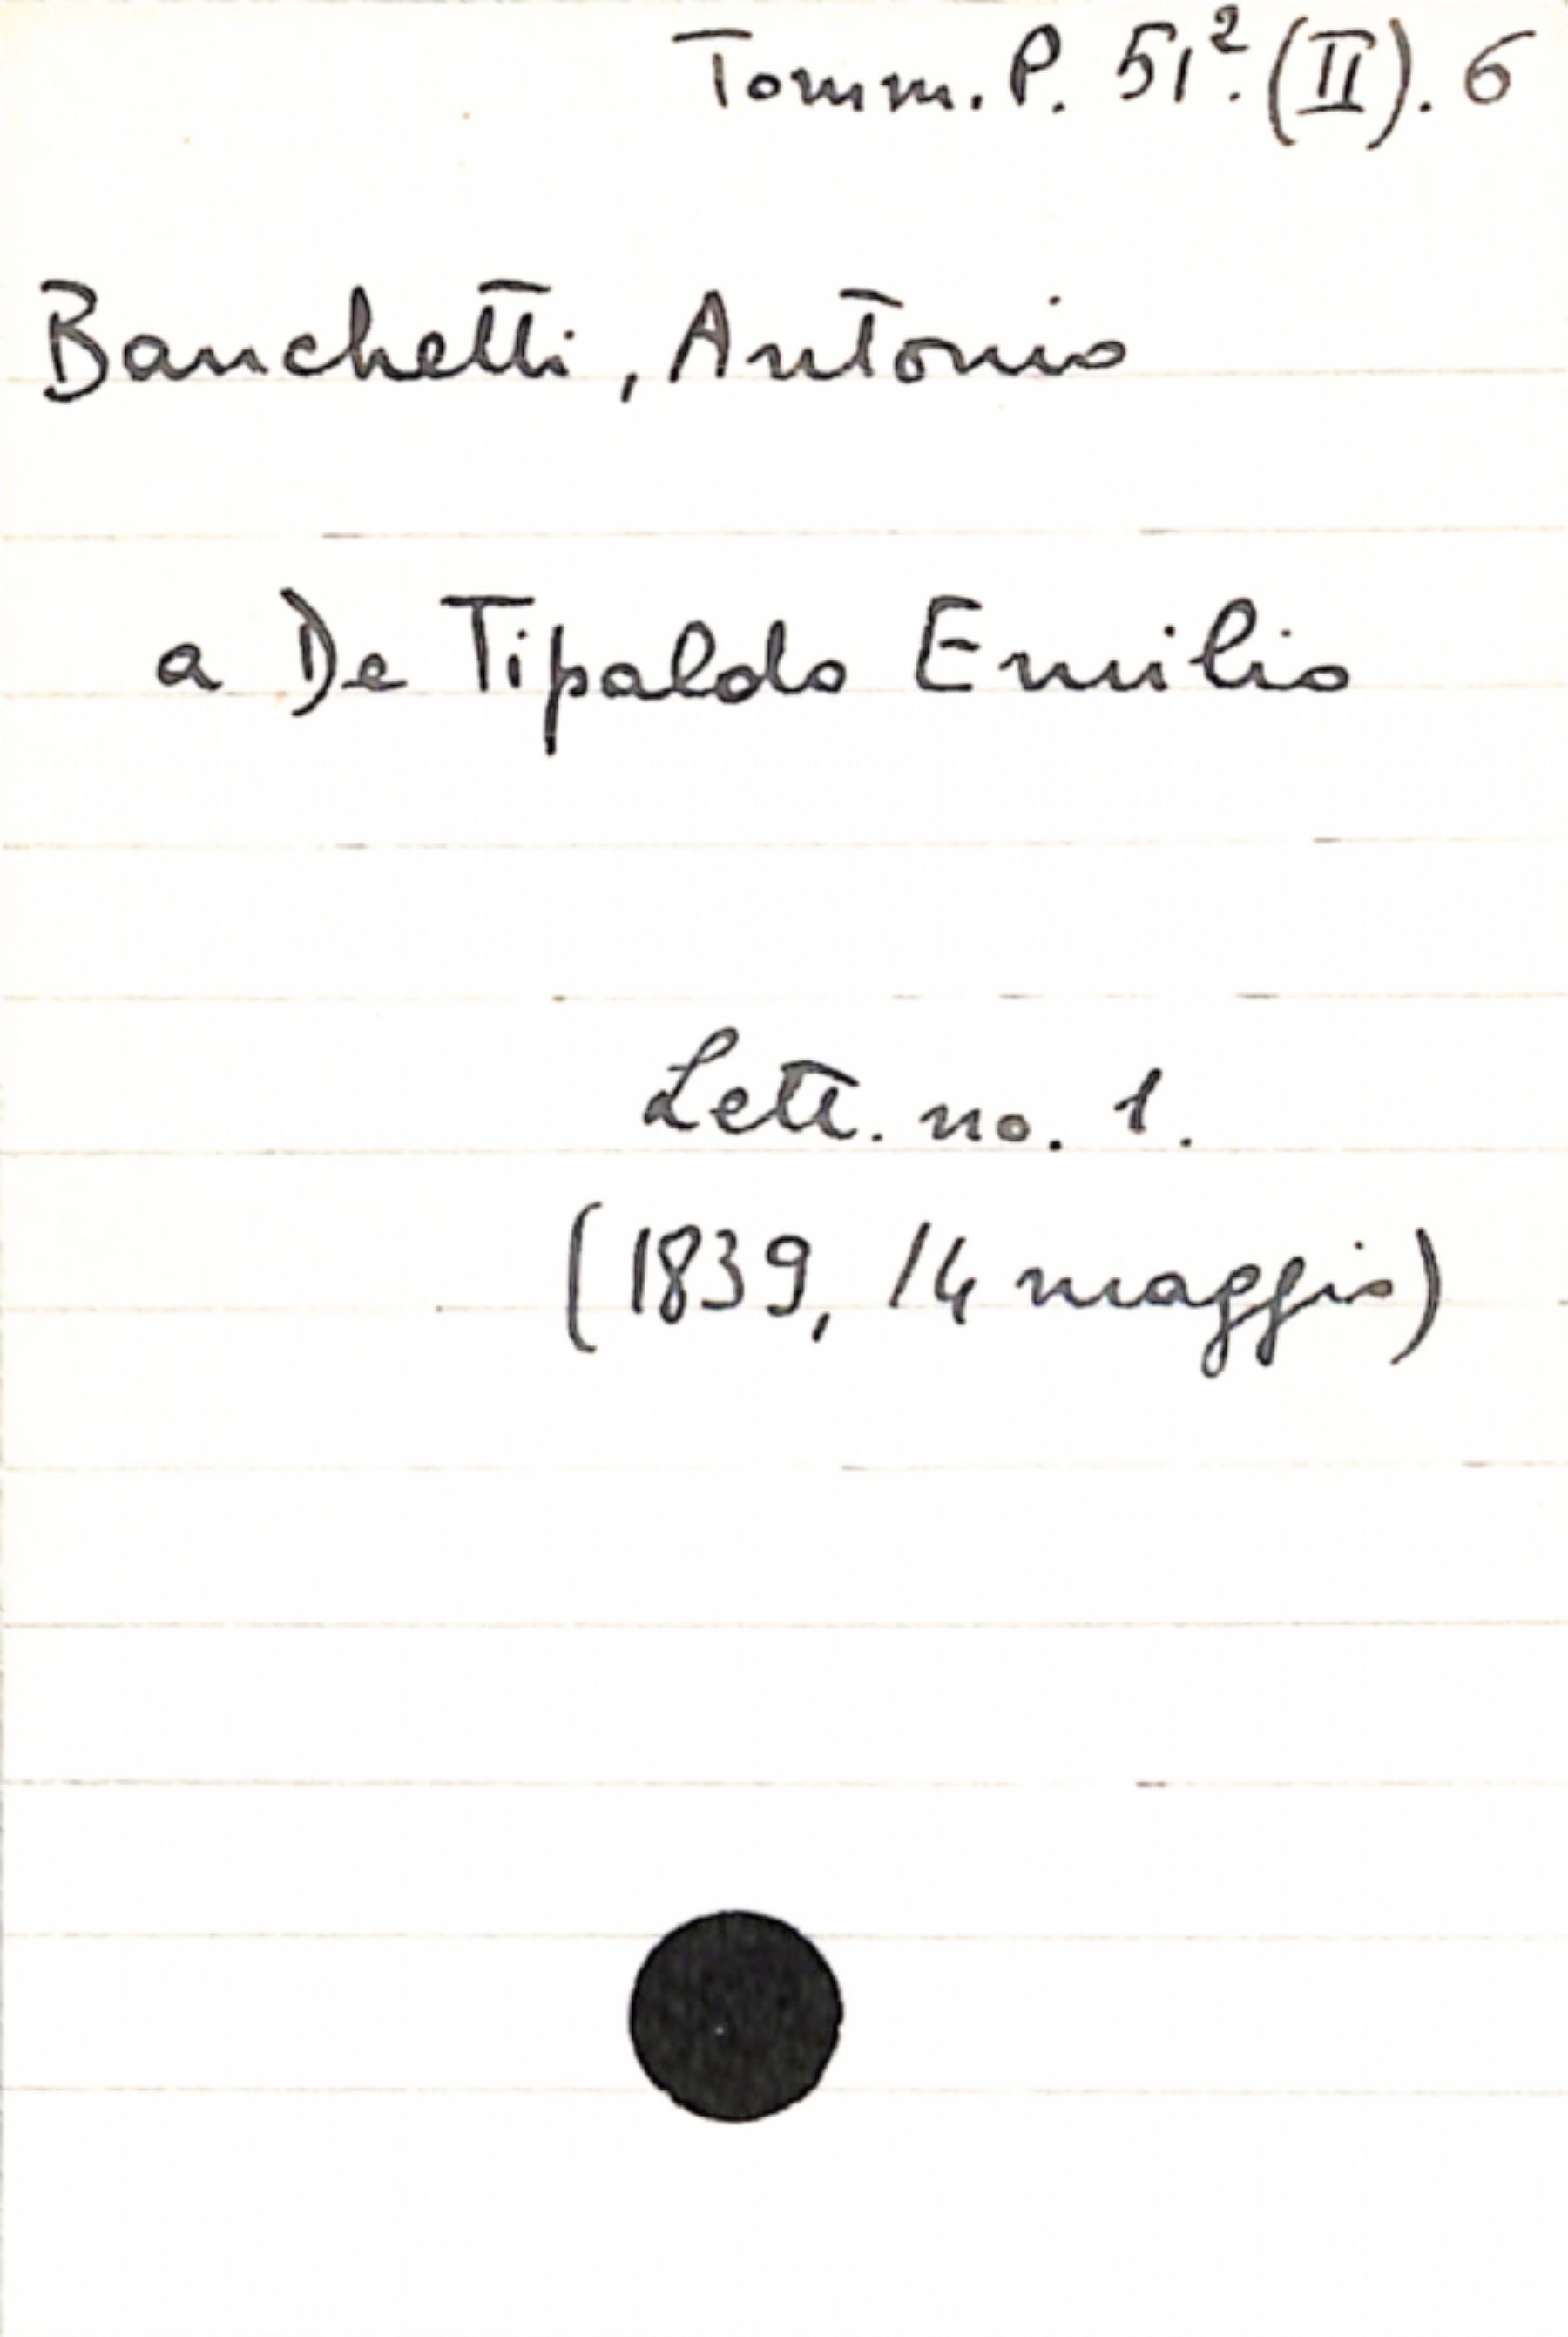 Tomm. P. 51². (II). 6
Banchetti, Antonio
a De Tipaldo Emilio
Lett. no. 1.
(1839, 14 maggio)